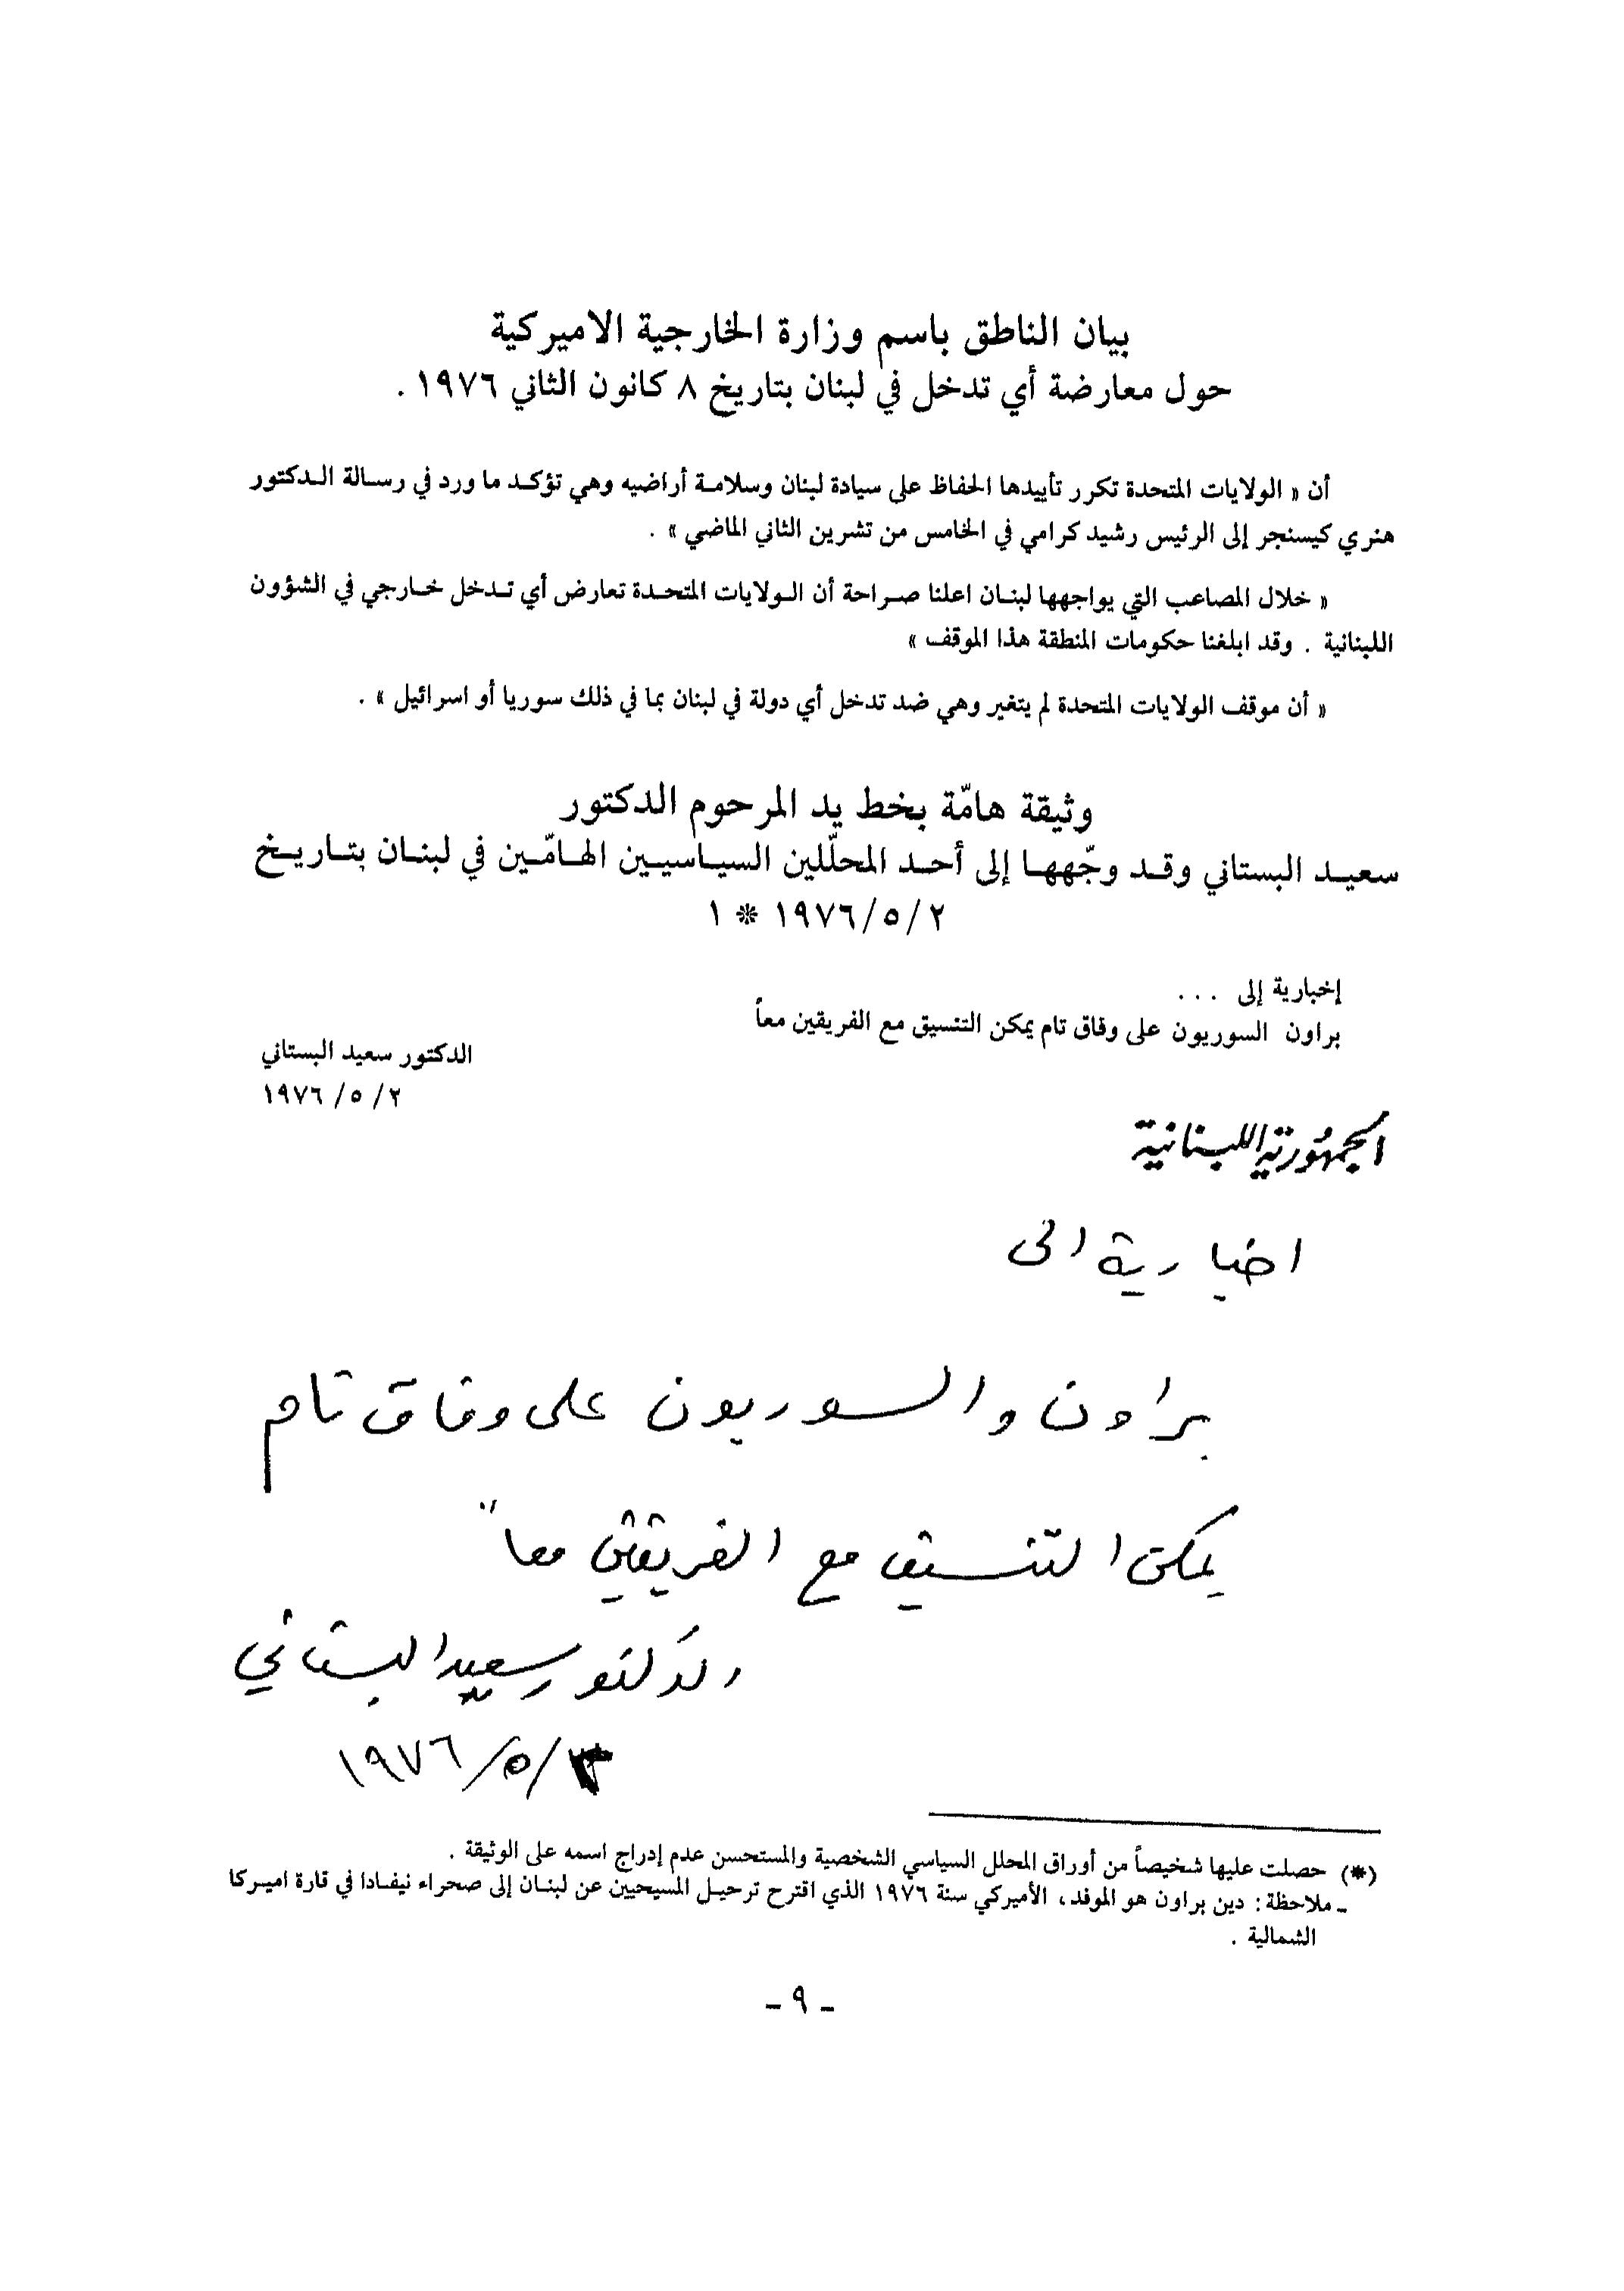 بيان الناطق باسم وزارة الخارجية الاميركية
حول معارضة أي تدخل في لبنان بتاريخ ٨ كانون الثاني ١٩٧٦ .
أن « الولايات المتحدة تكرر تأييدها الحفاظ على سيادة لبنان وسلامة أراضيه وهي تؤكد ما ورد في رسالة الدكتور
هنري كيسنجر إلى الرئيس رشيد كرامي في الخامس من تشرين الثاني الماضي » .
« خلال المصاعب التي يواجهها لبنان اعلنا صراحة أن الولايات المتحدة تعارض أي تدخل خارجي في الشؤون
اللبنانية . وقد ابلغنا حكومات المنطقة هذا الموقف »
« أن موقف الولايات المتحدة لم يتغير وهي ضد تدخل أي دولة في لبنان بما في ذلك سوريا أو اسرائيل » .
وثيقة هامّة بخط يد المرحوم الدكتور
سعيد البستاني وقد وجّهها إلى أحد المحلّلين السياسيين الهامّين في لبنان بتاريخ
٢/٥/١٩٧٦ * ١
إخبارية إلى ...
براون السوريون على وفاق تام يمكن التنسيق مع الفريقين معاً
الدكتور سعيد البستاني
٢/٥/١٩٧٦
الجمهُورية اللبنانية
اخبارية الى
براون والسوريون على وفاق تام
يمكن التنسيق مع الفريقين معاً
الدكتور سعيد البستاني
/٥/١٩٧٦
(*) حصلت عليها شخيصاً من أوراق المحلل السياسي الشخصية والمستحسن عدم إدراج اسمه على الوثيقة .
ـ ملاحظة : دين براون هو الموفد ، الأميركي سنة ١٩٧٦ الذي اقترح ترحيل المسيحيين عن لبنان إلى صحراء نيفادا في قارة اميركا
الشمالية .
- ٩ -